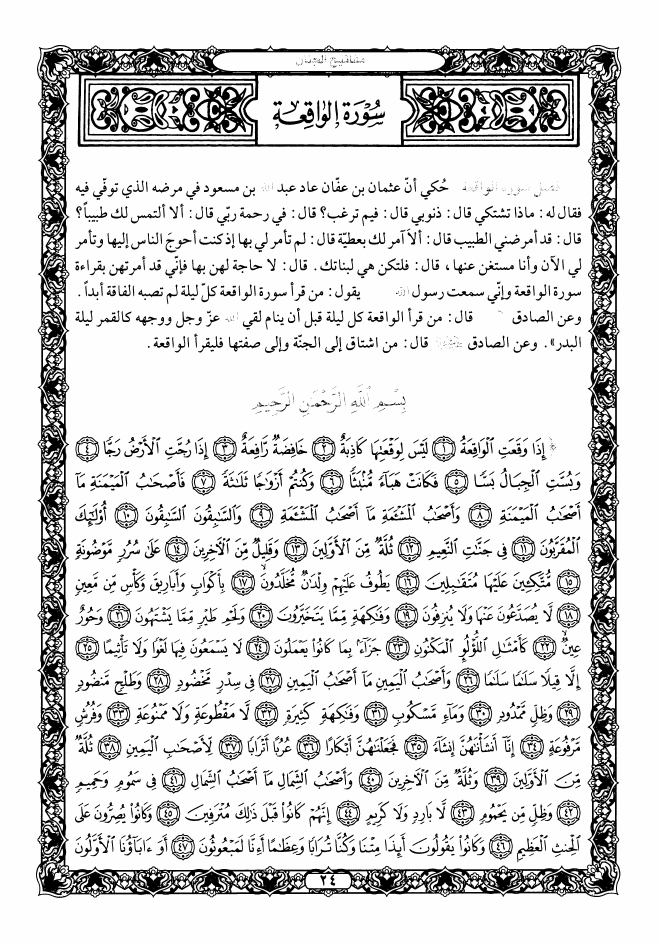 مفاتيح الجنان
سُورَةُ الوَاقِعَةِ
فضل سورة الواقعة حُكي أنّ عثمان بن عفّان عاد عبد الله بن مسعود في مرضه الذي توفّي فيه
فقال له : ماذا تشتكي قال : ذنوبي قال : فيم ترغب؟ قال : في رحمة ربّي قال : ألا ألتمس لك طبيباً؟
قال : قد أمرضني الطبيب قال : ألا آمر لك بعطيّة قال : لم تأمر لي بها إذ كنت أحوجَ الناس إليها وتأمر
لي الآن وأنا مستغن عنها ، قال : فلتكن هي لبناتك . قال : لا حاجة لهن بها فإنّي قد أمرتهن بقراءة
سورة الواقعة وإنّي سمعت رسول الله يقول : من قرأ سورة الواقعة كلّ ليلة لم تصبه الفاقة أبداً .
وعن الصادق قال : من قرأ الواقعة كل ليلة قبل أن ينام لقي الله عزّ وجل ووجهه كالقمر ليلة
البدر» . وعن الصادق قال : من اشتاق إلى الجنّة وإلى صفتها فليقرأ الواقعة .
بِسْمِ اللَّهِ الرَّحْمَنِ الرَّحِيمِ
﴿ إِذَا وَقَعَتِ الْوَاقِعَةُ ﴿١﴾ لَيْسَ لِوَقْعَتِهَا كَاذِبَةٌ ﴿٢﴾ خَافِضَةٌ رَّافِعَةٌ ﴿٣﴾ إِذَا رُجَّتِ الْأَرْضُ رَجًّا ﴿٤﴾
وَبُسَّتِ الْجِبَالُ بَسًّا ﴿٥﴾ فَكَانَتْ هَبَاءً مُّنبَثًّا ﴿٦﴾ وَكُنتُمْ أَزْوَاجًا ثَلَاثَةً ﴿٧﴾ فَأَصْحَابُ الْمَيْمَنَةِ مَا
أَصْحَابُ الْمَيْمَنَةِ ﴿٨﴾ وَأَصْحَابُ الْمَشْئَمَةِ مَا أَصْحَابُ الْمَشْئَمَةِ ﴿٩﴾ وَالسَّابِقُونَ السَّابِقُونَ ﴿١٠﴾ أُوْلَئِكَ
الْمُقَرَّبُونَ ﴿١١﴾ فِي جَنَّاتِ النَّعِيمِ ﴿١٢﴾ ثُلَّةٌ مِّنَ الْأَوَّلِينَ ﴿١٣﴾ وَقَلِيلٌ مِّنَ الْآخِرِينَ ﴿١٤﴾ عَلَى سُرُرٍ مَّوْضُونَةٍ
﴿١٥﴾ مُّتَّكِئِينَ عَلَيْهَا مُتَقَابِلِينَ ﴿١٦﴾ يَطُوفُ عَلَيْهِمْ وِلْدَانٌ مُّخَلَّدُونَ ﴿١٧﴾ بِأَكْوَابٍ وَأَبَارِيقَ وَكَأْسٍ مِّن مَّعِينٍ
﴿١٨﴾ لَّا يُصَدَّعُونَ عَنْهَا وَلَا يُنزِفُونَ ﴿١٩﴾ وَفَاكِهَةٍ مِّمَّا يَتَخَيَّرُونَ ﴿٢٠﴾ وَلَحْمِ طَيْرٍ مِّمَّا يَشْتَهُونَ ﴿٢١﴾ وَحُورٌ
عِينٌ ﴿٢٢﴾ كَأَمْثَالِ اللُّؤْلُؤِ الْمَكْنُونِ ﴿٢٣﴾ جَزَاءً بِمَا كَانُوا يَعْمَلُونَ ﴿٢٤﴾ لَا يَسْمَعُونَ فِيهَا لَغْوًا وَلَا تَأْثِيمًا ﴿٢٥﴾
إِلَّا قِيلًا سَلَامًا سَلَامًا ﴿٢٦﴾ وَأَصْحَابُ الْيَمِينِ مَا أَصْحَابُ الْيَمِينِ ﴿٢٧﴾ فِي سِدْرٍ مَّخْضُودٍ ﴿٢٨﴾ وَطَلْحٍ مَّنضُودٍ
﴿٢٩﴾ وَظِلٍّ مَّمْدُودٍ ﴿٣٠﴾ وَمَاءٍ مَّسْكُوبٍ ﴿٣١﴾ وَفَاكِهَةٍ كَثِيرَةٍ ﴿٣٢﴾ لَّا مَقْطُوعَةٍ وَلَا مَمْنُوعَةٍ ﴿٣٣﴾ وَفُرُشٍ
مَّرْفُوعَةٍ ﴿٣٤﴾ إِنَّا أَنشَأْنَاهُنَّ إِنشَاءً ﴿٣٥﴾ فَجَعَلْنَاهُنَّ أَبْكَارًا ﴿٣٦﴾ عُرُبًا أَتْرَابًا ﴿٣٧﴾ لِّأَصْحَابِ الْيَمِينِ ﴿٣٨﴾ ثُلَّةٌ
مِّنَ الْأَوَّلِينَ ﴿٣٩﴾ وَثُلَّةٌ مِّنَ الْآخِرِينَ ﴿٤٠﴾ وَأَصْحَابُ الشِّمَالِ مَا أَصْحَابُ الشِّمَالِ ﴿٤١﴾ فِي سَمُومٍ وَحَمِيمٍ
﴿٤٢﴾ وَظِلٍّ مِّن يَحْمُومٍ ﴿٤٣﴾ لَّا بَارِدٍ وَلَا كَرِيمٍ ﴿٤٤﴾ إِنَّهُمْ كَانُوا قَبْلَ ذَلِكَ مُتْرَفِينَ ﴿٤٥﴾ وَكَانُوا يُصِرُّونَ عَلَى
الْحِنثِ الْعَظِيمِ ﴿٤٦﴾ وَكَانُوا يَقُولُونَ أَئِذَا مِتْنَا وَكُنَّا تُرَابًا وَعِظَامًا أَءِنَّا لَمَبْعُوثُونَ ﴿٤٧﴾ أَوَ ءَابَاؤُنَا الْأَوَّلُونَ
٢٤